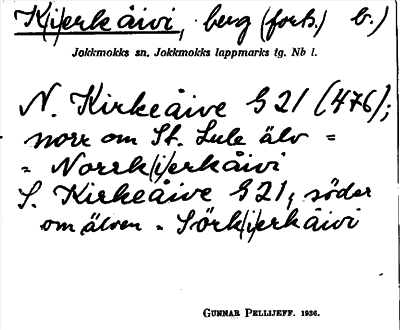 K(i)erkåivi, berg (forts.) b.)
Jokkmokks sn. Jokkmokks lappmarks tg. Nb l.
N. Kirkeåive G 21 (476);
norr om St. Lule älv =
= Norrk(i)erkåivi
S. Kirkeåive G 21, söder
om älven = Sörk(i)erkåivi
GUNNAR PELLIJEFF. 1936.